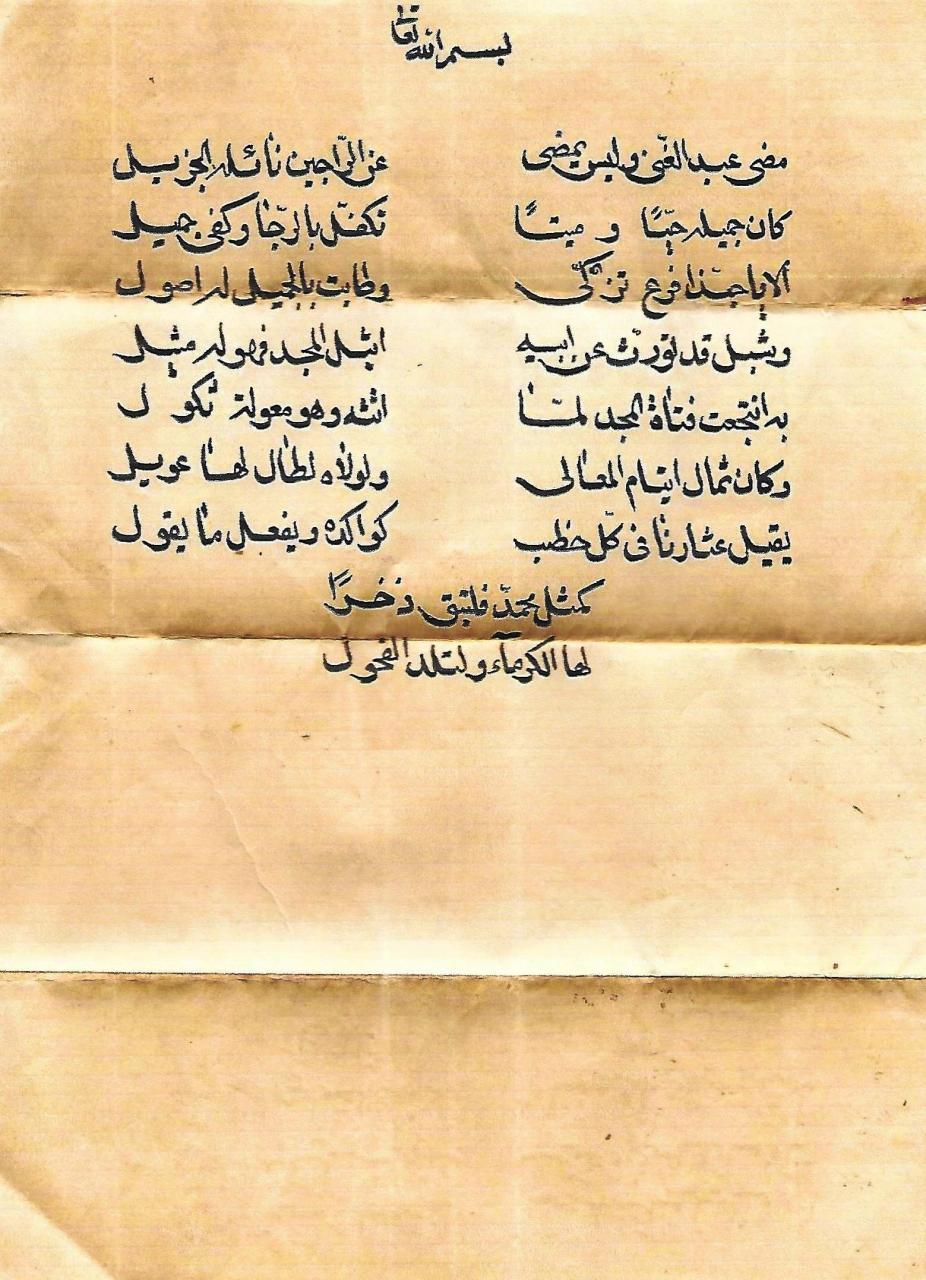 بسم الله تعالى
مضى عبد الغني وليس يمضى عن الراجين نائله الجزيل
كان جميله حيًّا و ميتًا تكفّل بالرّجا وكفى جميل
ألا يا حبّذا فرع تزكّى وطابت بالجميل له اصول
وشبل قد تورّث عن ابيه اثيل المجد فهو له مثيل
به انتجعت فتاة المجد لمّا اتته وهو معولة ثكول
وكان ثمال ايتام المعالى ولولاه لطال لها عويل
يقيل عثارنا فى كلّ خطب كوالده ويفعل ما يقول
كمثل محمدّ فلتبق ذخرًا
لها الكرمآء ولتلد الفحول